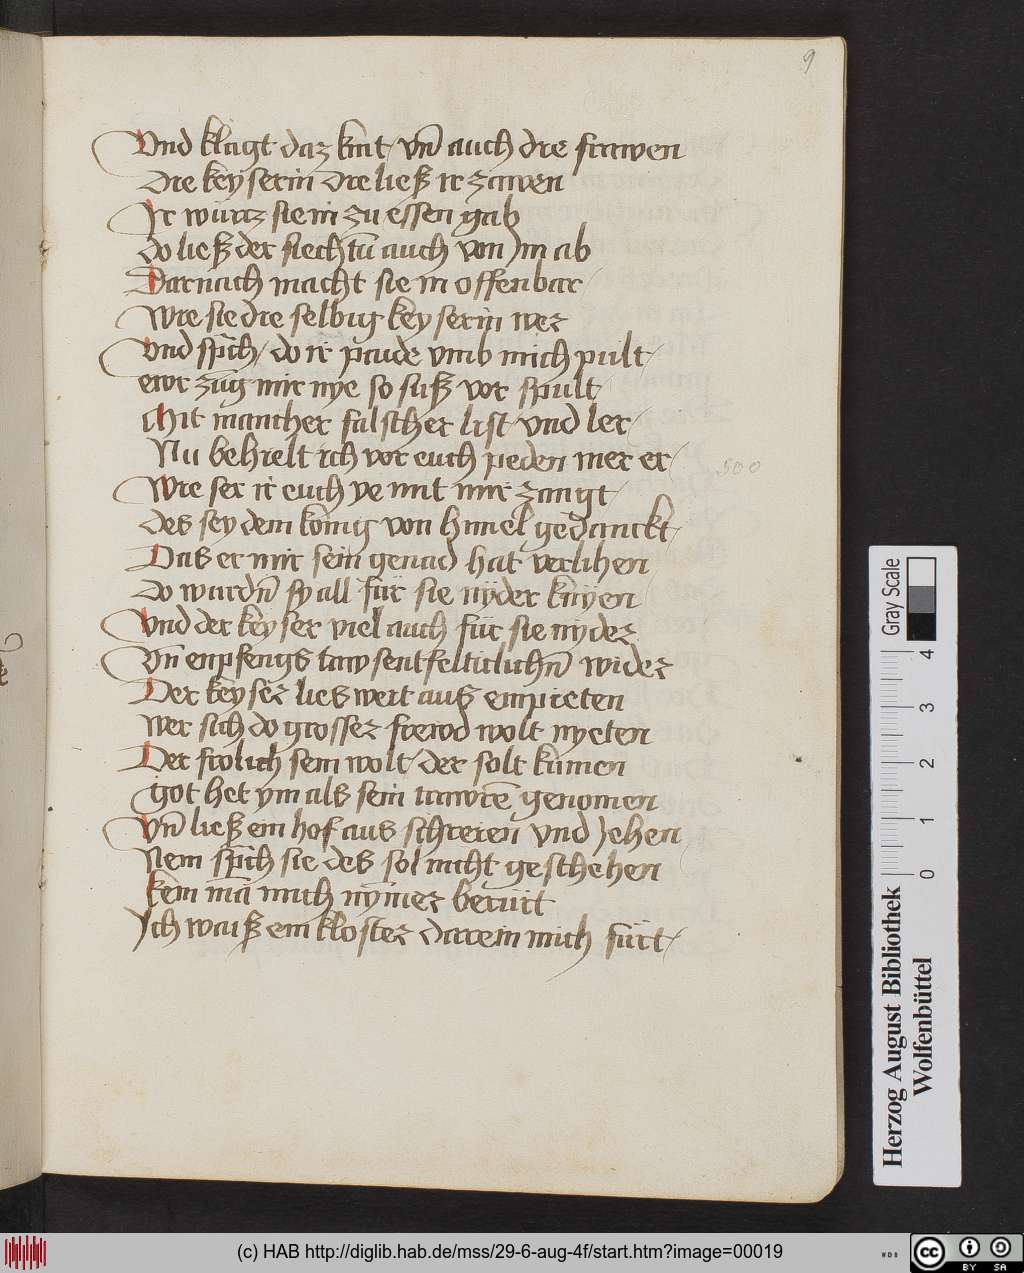 9
Vnd klagt daz kint / vn̄ auch die frawen
Die keyserin die ließ ir zawen
Ir würtz sie in zu essen gab
do ließ der siechtū auch von Jm ab
Darnach macht sie in offenbar /
Wie sie die selbig keyserin wer
Vnd sprach / do ir paide vmb mich pult /
ewr zūg mir nye so süß vor spült /
Mit mancher falscher list vnd ler /
Nu behielt ich vor euch peden mer er /
500
Wie ser ir euch ye mit mir zangt /
des sey dem konig von himel gedanckt /
Das er mir sein genad hat verlihen /
do wurdn̄ sy all für sie nyder knyen /
Vnd der keyser viel auch für sie nyder
Vn̄ enpfengs tawsentfelticlichn̄ wider
Der keyser lies weit aus empieten
wer sich do grosser frewd wolt nyeten
Der frolich sein wolt / der solt kūmen
got het ym als sein trawrē genomen
Vn̄ ließ ein hof aus schreien vnd Jehen
Nein sprach sie des sol nicht geschehen
kein mā mich nym̄er berürt
Ich waiß ein kloster darein mich fürt /
Herzog August Bibliothek
Wolfenbüttel
Gray Scale
0 1 2 3 4
(c) HAB http://diglib.hab.de/mss/29-6-aug-4f/start.htm?image=00019
WDB
cc BY SA